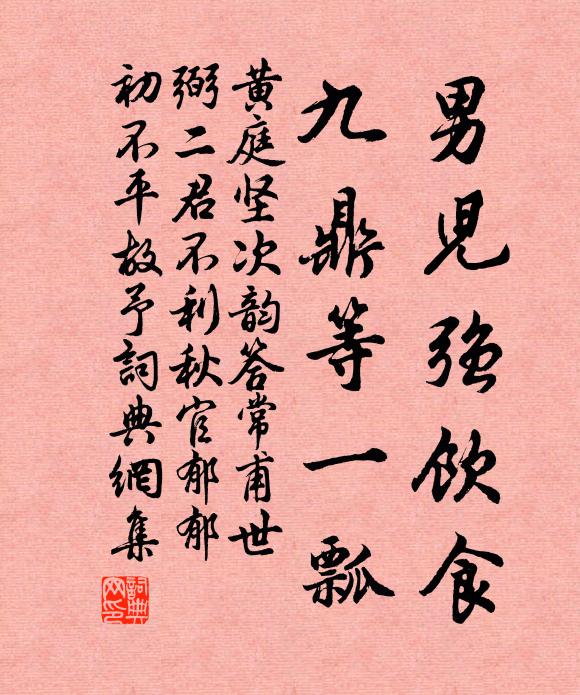 男児強飲食
九鼎等一瓢
黄庭坚次韵答常甫世
弼二君不利秋官郁郁
初不平故予詞典網集
詞典
网印